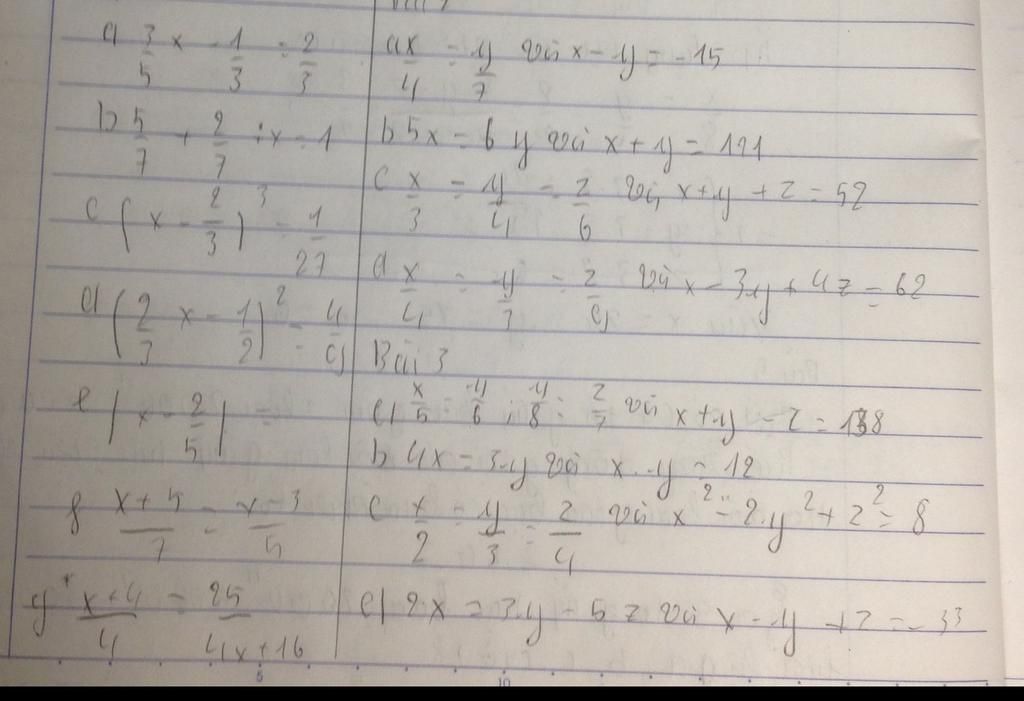 a) 3/5 x - 1/3 = 2/3
b) 5/7 + 2/7 : x = 1
c ( x - 2/3 )^3 = 1/27
d ( 2/3 x - 1/2 )^2 = 4/9
e | x - 2/5 | =
f x+5/7 = x-3/5
g x+4/4 = 25/4x+16
a x/4 = y/7 với x - y = -15
b 5x = 6y với x + y = 121
c x/3 = y/4 = z/6 với x + y + z = 52
d x/4 = y/3 = z/9 với x - 3.y + 4z = 62
Bài 3
a) x/5 = y/6 ; y/8 = z/7 với x + y - z = 138
b 4x = 3.y với x . y = 12
c x/2 = y/3 = z/4 với x^2 - 2.y^2 + z^2 = 8
e) 2x = 3.y = 5z với x - y + z = -33